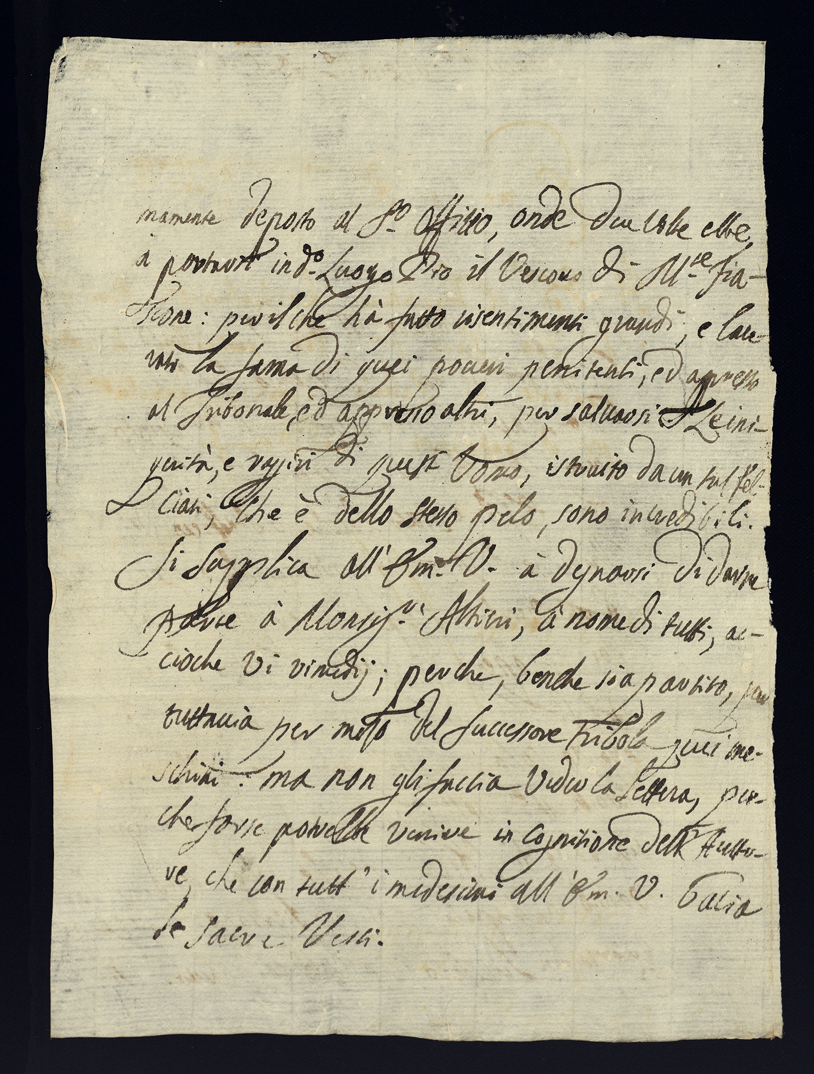 namente deposto al S.o Offitio, onde due volte ebbe
à portarsi in d.o Luogo Pio il Vescovo di M.te Fia-
scone: per il che hà fatto risentimenti grandi, e lace-
rati la fama di quei poveri penitenti, ed apresso
al Tribonale, ed appresso altri, per salvarsi. Le ini-
quità, e raggiri di quest' Uomo, istruito da un tal Fel-
ciati, che è dello stesso pelo, sono incredibili.
Si supplica all' Em. V. à degnarsi di darne
parte à Monsig.r Altieri, à nome di tutti, ac-
cioche vi rimedij; perche, benche sia partito, pur
tuttavia per mezo del successore tribola quei me-
schini: ma non gli faccia veder la lettera, per-
che forse potrebbe venire in cognitione dell' Autto-
re, che con tutt' i medesimi all' Em. V. bacia
le sacre Vesti.